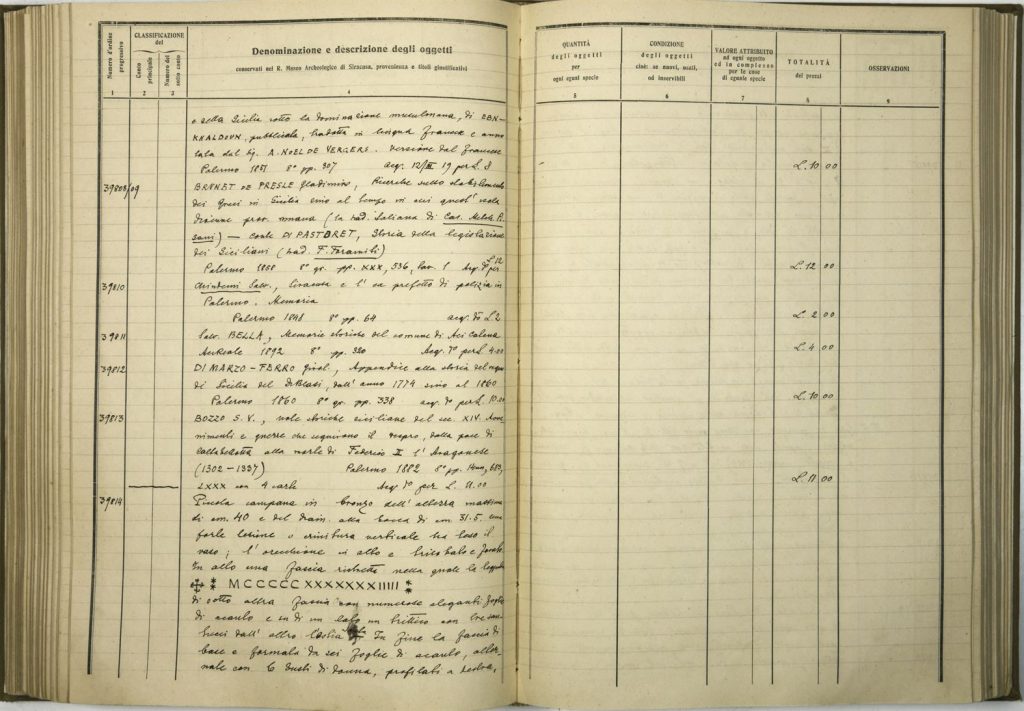 Numero d'ordine progressivo
CLASSIFICAZIONE del
Conto principale
Numero del sotto conto
Denominazione e descrizione degli oggetti
conservati nel R. Museo Archeologico di Siracusa, provenienza e titoli giustificativi
QUANTITÀ degli oggetti per ogni egual specie
CONDIZIONE degli oggetti cioè: se nuovi, usati, od inservibili
VALORE ATTRIBUITO ad ogni oggetto ed in complesso per le cose di eguale specie
TOTALITÀ dei prezzi
OSSERVAZIONI
1 2 3 4 5 6 7 8 9
e della Sicilia sotto la dominazione musulmana, di EBN-
KHALDOUN, pubblicata, tradotta in lingua francese e anno
tata dal Sig. A. NOEL DE VERGERS. Versione dal francese
Palermo 8° pp. 307 acq. 12/III 19 per L. L. 10 00
39808/09 BRUNET DE PRESLE Wladimiro, Ricerche sullo stabilimento
dei Greci in Sicilia sino al tempo in cui quest' isola
divenne prov. romana (la trad. italiana di
) — conte DI PASTORET, Storia della legislazione
dei Siciliani (trad. F. )
L. 12
Palermo 8° gr. pp. XXX, 536, tav. 1 Acq. per L. 12 00
39810 Salv., Siracusa e l' ex prefetto di polizia in
Palermo. Memoria
Palermo 1848 8° pp. 64 acq. L. 2 L. 2 00
39811 Salv. BELLA, Memorie storiche del comune di Aci Catena
Acireale 1892 8° pp. 320 Acq. per L. 4.00 L. 4 00
39812 DI MARZO-FERRO Girol., Appendice alla storia del regno
di Sicilia del Di Blasi, dall' anno 1774 sino al 1860
Palermo 1860 8° gr. pp. 338 acq. per L. 10.00 L. 10 00
39813 BOZZO S. V., note storiche siciliane del sec. XIV. Avve
nimenti e guerre che seguirono il vespro, dalla pace di
Caltabellotta alla morte di Federico II l' Aragonese
(1302-1337) Palermo 1882 8° pp. 683,
LXXX con 4 carte Acq. per L. 11.00 L. 11 00
39814 Piccola campana in bronzo dell' altezza massima
di cm. 40 e del diam. alla bocca di cm. 31.5. una
forte lesione o crinitura verticale ha leso il
vaso; l' orecchione in alto e
In alto una fascia nella quale la leggenda
MCCCCCXXXXXXXIIIII
di sotto altra fascia con numerose eleganti foglie
di acanto e in di un lato un trittico con tre san
dall' altro In fine la fascia di
base e formata da sei foglie di acanto, alter
nate con 6 busti di donna, profilati a destra,